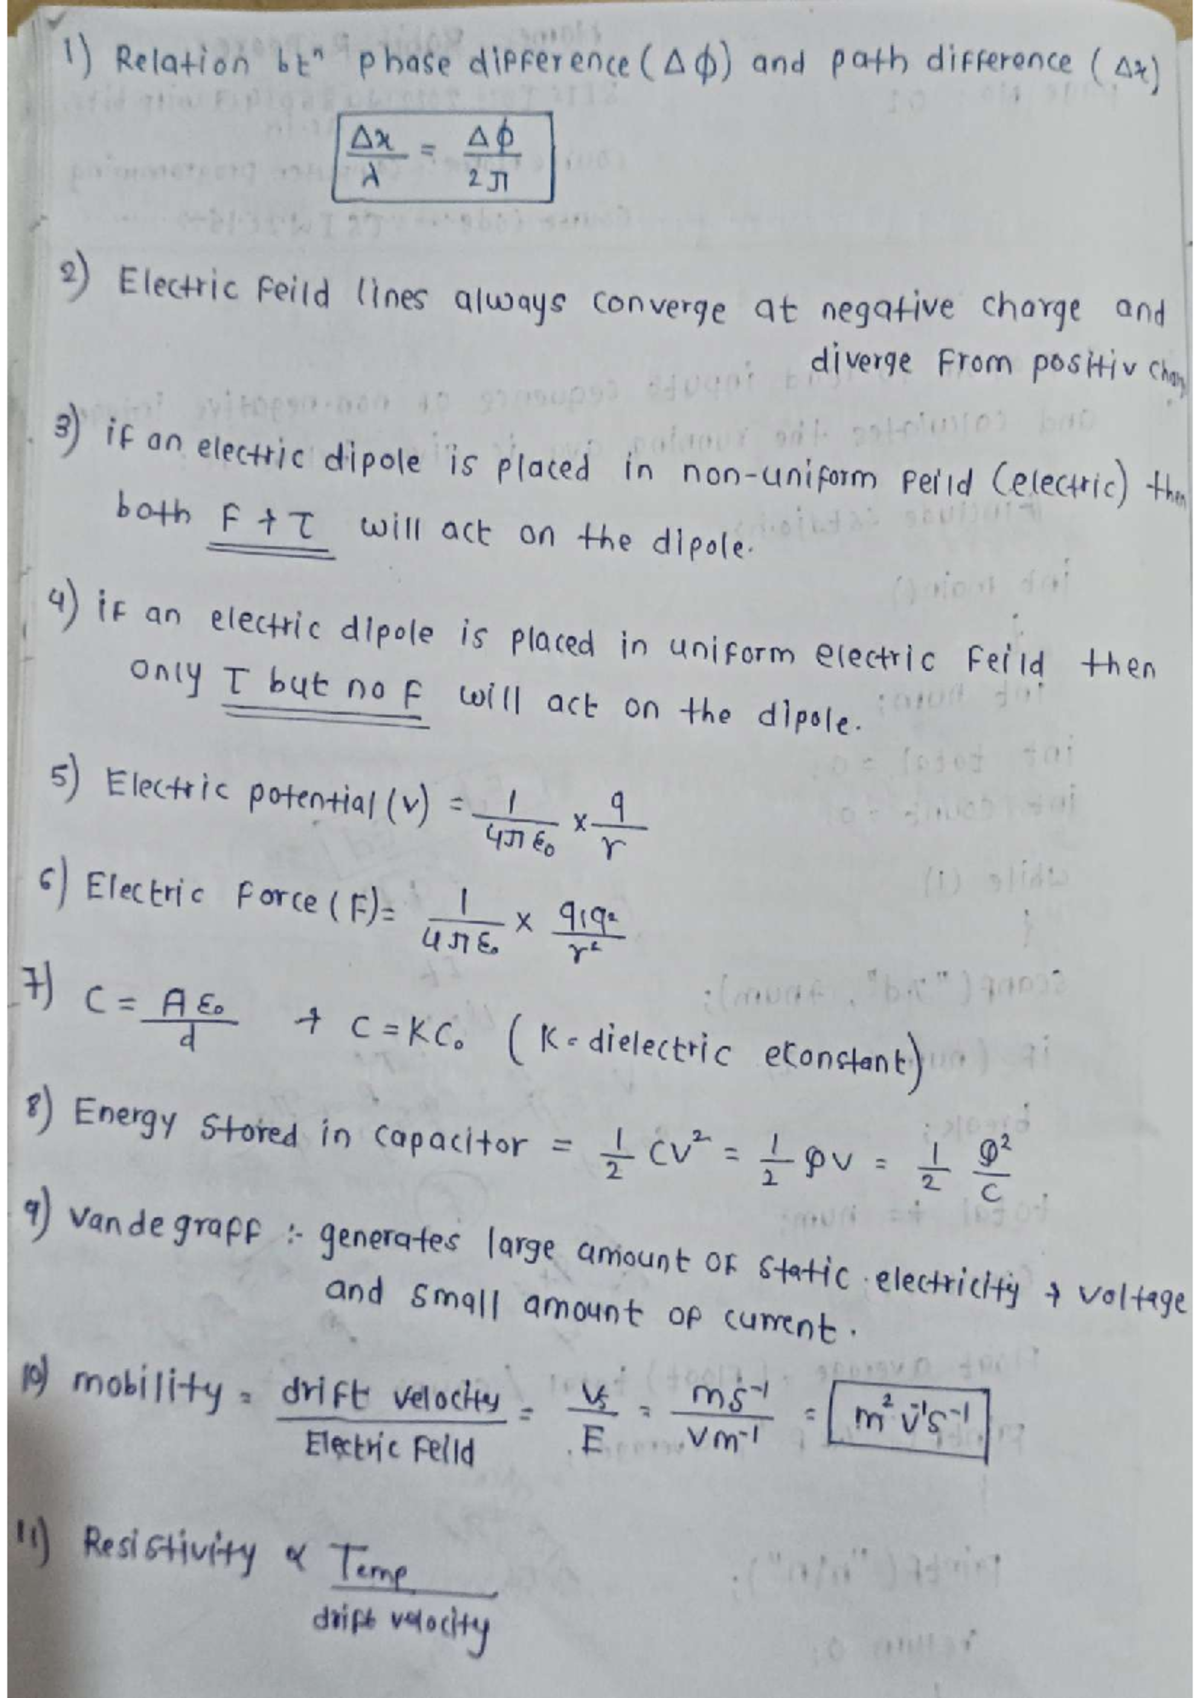 1) Relation btⁿ phase difference (Δϕ) and path difference (Δx)
Δx/λ = Δϕ/2π
2) Electric Feild lines always converge at negative charge and
diverge From positiv charge
3) if an electric dipole is placed in non-uniform Feild (electric) then
both F + τ will act on the dipole.
4) if an electric dipole is placed in uniform electric Feild then
only τ but no F will act on the dipole.
5) Electric potential (v) = 1/4πε₀ × q/r
6) Electric Force (F) = 1/4πε₀ × q₁q₂/r²
7) C = Aε₀/d + C = KC₀ (K = dielectric constant)
8) Energy Stored in capacitor = 1/2 CV² = 1/2 QV = 1/2 Q²/C
9) Vande graff :- generates large amount of static electricity + voltage
and small amount of current.
10) mobility = drift velocity/Electric Feild = Vs/E = ms⁻¹/Vm⁻¹ = m² v⁻¹s⁻¹
11) Resistivity ∝ Temp/drift velocity